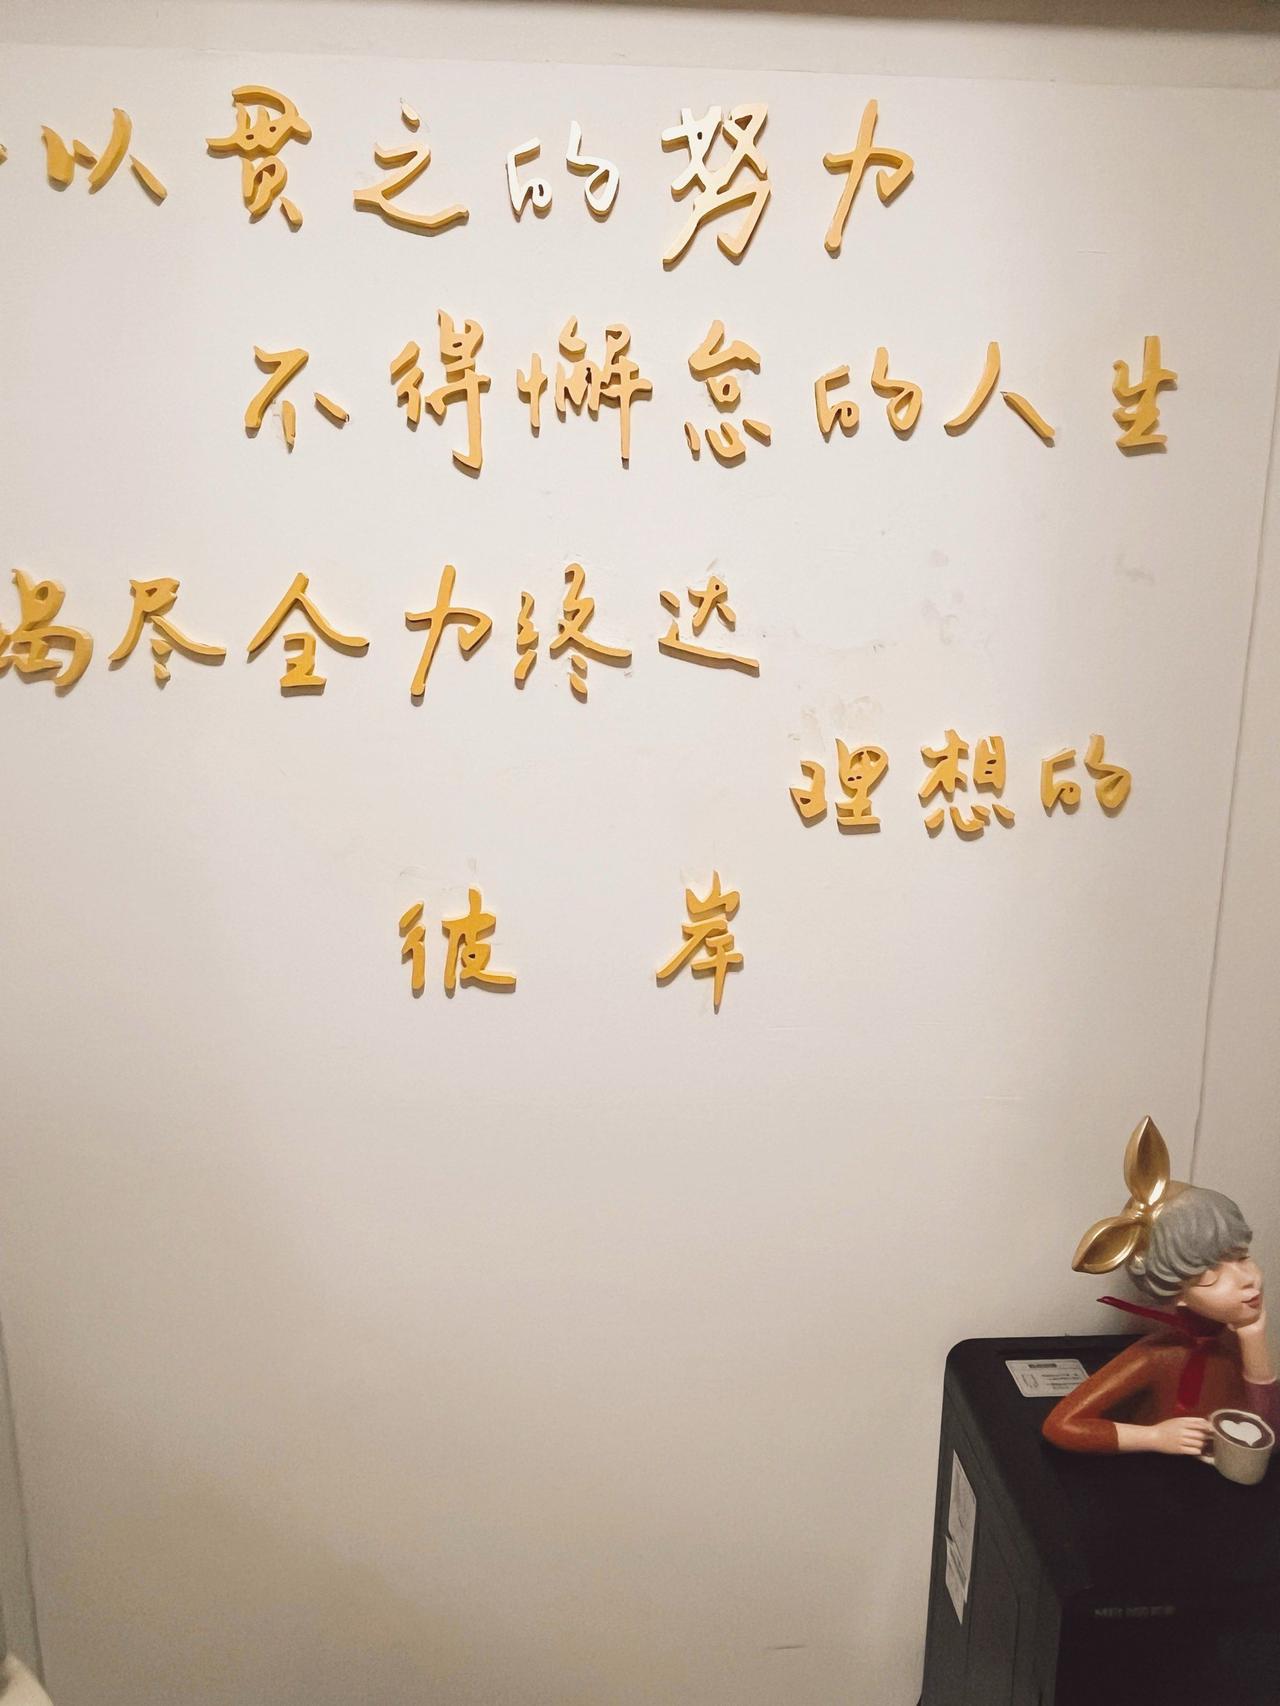 以贯之的努力
不得懈怠的人生
竭尽全力终达
理想的
彼岸